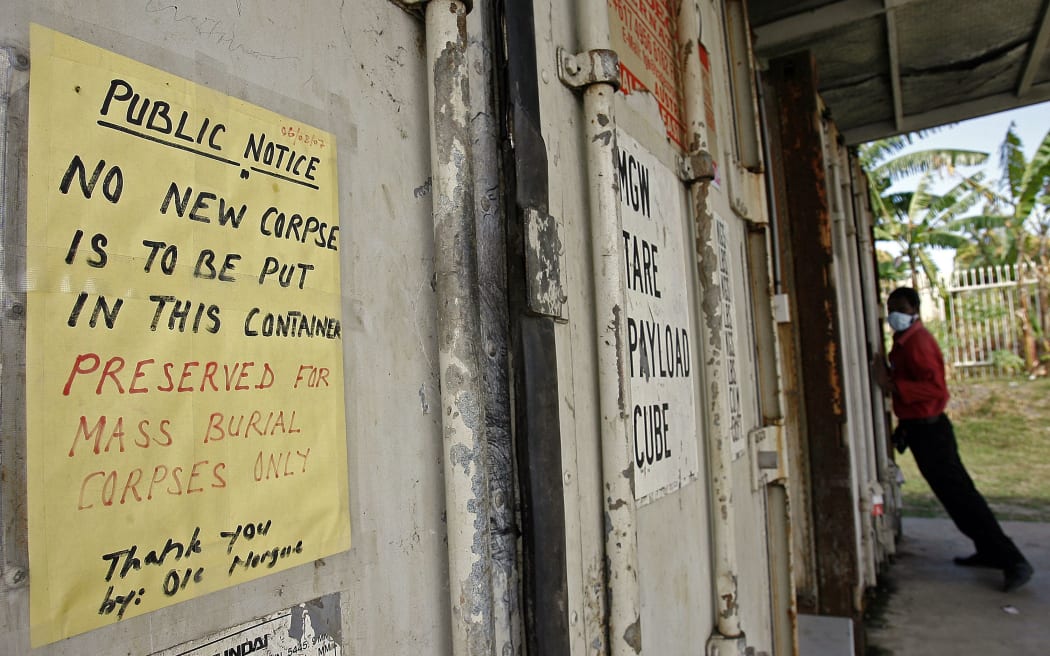 06/08/07
PUBLIC NOTICE
NO NEW CORPSE
IS TO BE PUT
IN THIS CONTAINER
PRESERVED FOR
MASS BURIAL
CORPSES ONLY
Thank you
by: OIC Morgue
MGW
TARE
PAYLOAD
CUBE